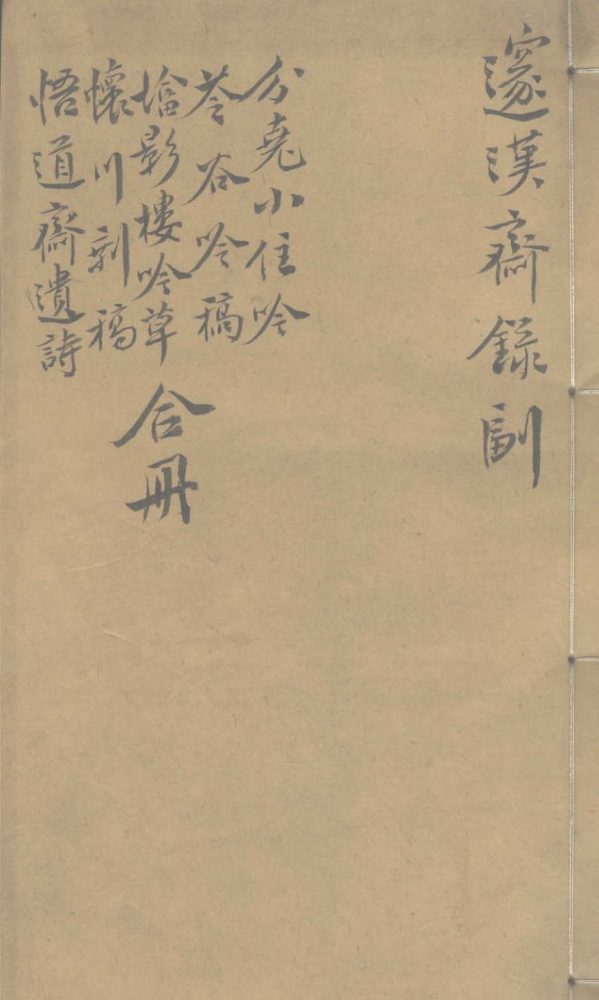 邃漢齋錄副
分堯小住吟
苓谷吟稿
墖影樓吟草
懷川剩稿
悟道齋遺詩
合冊